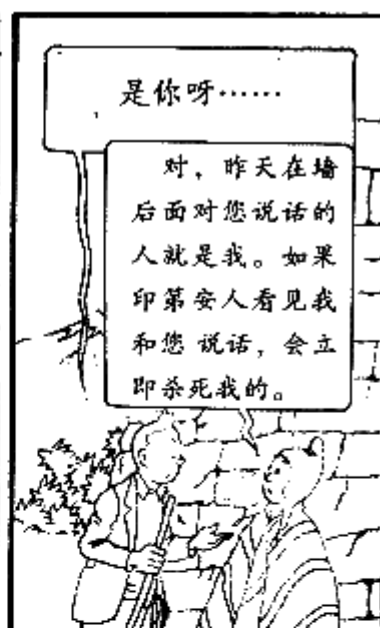 是你呀……
对，昨天在墙
后面对您说话的
人就是我。如果
印第安人看见我
和您说话，会立
即杀死我的。